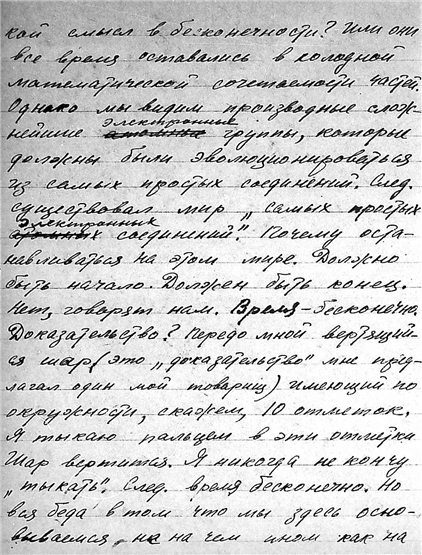 кой смысл в бесконечности? Или они
все время оставались в холодной
математической сочетаемости частей.
Однако мы видим производные слож-
электронные
нейшие атомные группы, которые
должны были эволюционироваться
из самых простых соединений. След.
существовал мир „самых простых
электронных
атомных соединений". Почему оста-
навливаться на этом мире. Должно
быть начало. Должен быть конец.
Нет, говорят нам. Время – бесконечно.
Доказательство? Передо мной вертящий-
ся шар (это „доказательство" мне пред-
лагал один мой товарищ) имеющий по
окружности, скажем, 10 отметок.
Я тыкаю пальцем в эти отметки
Шар вертится. Я никогда не кончу
„тыкать". След. время бесконечно. Но
вся беда в том что мы здесь осно-
вываемся, не на чем ином как на